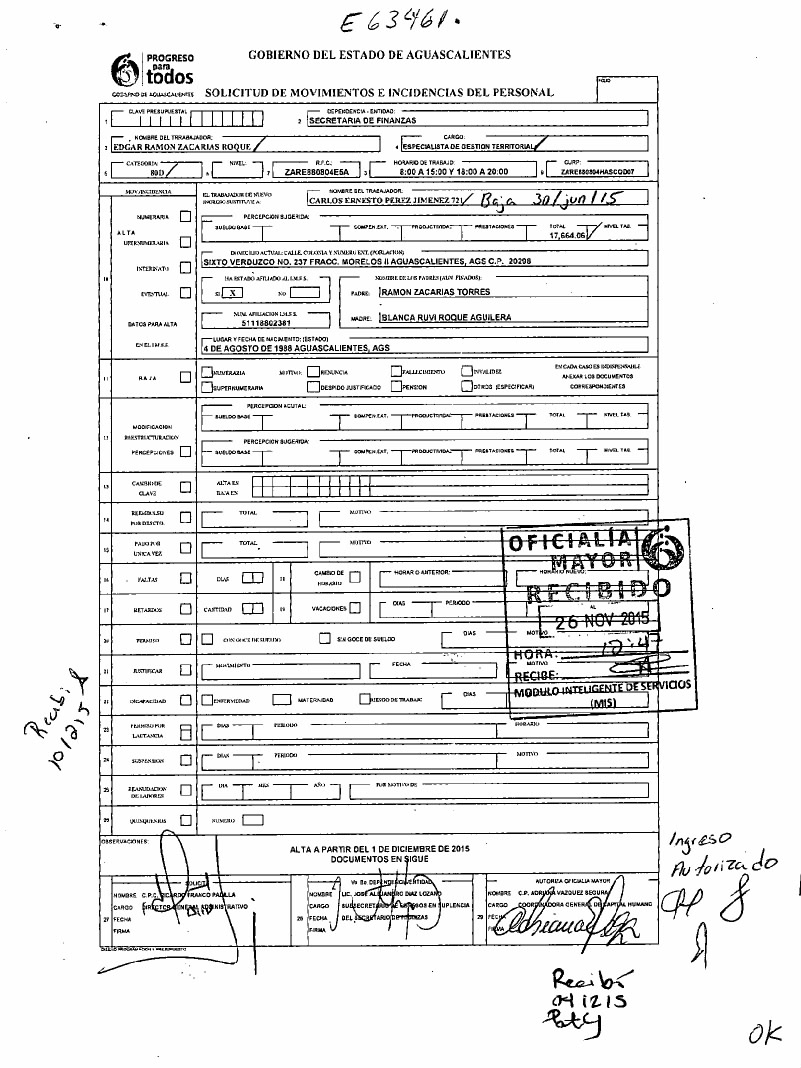 E63461.
PROGRESO
para
todos
GOBIERNO DE AGUASCALIENTES
GOBIERNO DEL ESTADO DE AGUASCALIENTES
SOLICITUD DE MOVIMIENTOS E INCIDENCIAS DEL PERSONAL
FOLIO
1 CLAVE PRESUPUESTAL
2 DEPENDENCIA - ENTIDAD:
SECRETARIA DE FINANZAS
3 NOMBRE DEL TRRABAJADOR:
EDGAR RAMON ZACARIAS ROQUE
4 CARGO:
ESPECIALISTA DE GESTION TERRITORIAL
5 CATEGORIA 6 NIVEL: 7 R.F.C.: HORARIO DE TRABAJO: 9 CURP:
80D ZARE880804E5A 8:00 A 15:00 Y 18:00 A 20:00
MOV/INCIDENCIA
EL TRABAJADOR DE NUEVO
INGRESO SUSTITUYE A:
NOMBRE DEL TRABAJADOR:
CARLOS ERNESTO PEREZ JIMENEZ 721 Baja 30/jun/15
NUMERARIA
PERCEPCION SUGERIDA:
SUELDO BASE COMPEN.EXT. PRODUCTIVIDAD PRESTACIONES TOTAL NIVEL TAB.
17,664.06
ALTA
UPERNUMERARIA
DOMICILIO ACTUAL: CALLE, COLONIA Y NUMERO EXT. (POBLACION)
SIXTO VERDUZCO NO. 237 FRACC. MORELOS II AGUASCALIENTES, AGS C.P. 20298
INTERINATO
10
HA ESTADO AFILIADO AL I.M.S.S.
SI X NO
NOMBRE DE LOS PADRES (AUN FINADOS):
EVENTUAL
PADRE: RAMON ZACARIAS TORRES
NUM. AFILIACION I.M.S.S.
51118802381
MADRE: BLANCA RUVI ROQUE AGUILERA
DATOS PARA ALTA
EN EL I.M.S.S.
LUGAR Y FECHA DE NACIMIENTO: (ESTADO)
4 DE AGOSTO DE 1988 AGUASCALIENTES, AGS
11 BAJA
NUMERARIA MOTIVO: RENUNCIA FALLECIMIENTO INVALIDEZ
SUPERNUMERARIA DESPIDO JUSTIFICADO PENSION OTROS (ESPECIFICAR)
EN CADA CASO ES INDISPENSABLE
ANEXAR LOS DOCUMENTOS
CORRESPONDIENTES
PERCEPCION ACUTAL:
SUELDO BASE COMPEN.EXT. PRODUCTIVIDA: PRESTACIONES TOTAL NIVEL TAB.
MODIFICACION
REESTRUCTURACION
PERCEPCIONES
PERCEPCION SUGERIDA:
SUELDO BASE COMPEN.EXT. PRODUCTIVIDA: PRESTACIONES TOTAL NIVEL TAB.
13 CAMBIO DE
CLAVE
ALTA EN
BAJA EN
14 REEMBOLSO
POR DESCTO.
TOTAL MOTIVO
15 PAGO POR
UNICA VEZ
TOTAL MOTIVO
16 FALTAS DIAS 18 CAMBIO DE
HORARIO
HORARIO ANTERIOR: HORARIO NUEVO:
17 RETARDOS CANTIDAD 19 VACACIONES DIAS PERIODO AL
20 PERMISO CON GOCE DE SUELDO SIN GOCE DE SUELDO DIAS MOTIVO
21 JUSTIFICAR MOVIMIENTO FECHA MOTIVO
22 INCAPACIDAD ENFERMEDAD MATERNIDAD RIESGO DE TRABAJO DIAS
23 PERMISO POR
LACTANCIA
DIAS PERIODO HORARIO
24 SUSPENSION DIAS PERIODO MOTIVO
25 REANUDACION
DE LABORES
DIA MES AÑO POR MOTIVO DE
26 QUINQUENIOS NUMERO
OFICIALIA
MAYOR
RECIBIDO
26 NOV 2015
HORA: 12:47
RECIBE:
MODULO INTELIGENTE DE SERVICIOS
(MIS)
Recibí
10/12/15
OBSERVACIONES:
ALTA A PARTIR DEL 1 DE DICIEMBRE DE 2015
DOCUMENTOS EN SIGUE
SOLICITA
NOMBRE C.P.C. RICARDO FRANCO PADILLA
CARGO DIRECTOR GENERAL ADMINISTRATIVO
27 FECHA
FIRMA
Vo Bo DEPENDENCIA/ENTIDAD
NOMBRE LIC. JOSE ALEJANDRO DIAZ LOZANO
CARGO SUBSECRETARIO DE EGRESOS EN SUPLENCIA
28 FECHA DEL SECRETARIO DE FINANZAS
FIRMA
AUTORIZA OFICIALIA MAYOR
NOMBRE C.P. ADRIANA VAZQUEZ SEGURA
CARGO COORDINADORA GENERAL DE CAPITAL HUMANO
29 FECHA
FIRMA
Ingreso
Autorizado
Recibí
041215
Paty
OK